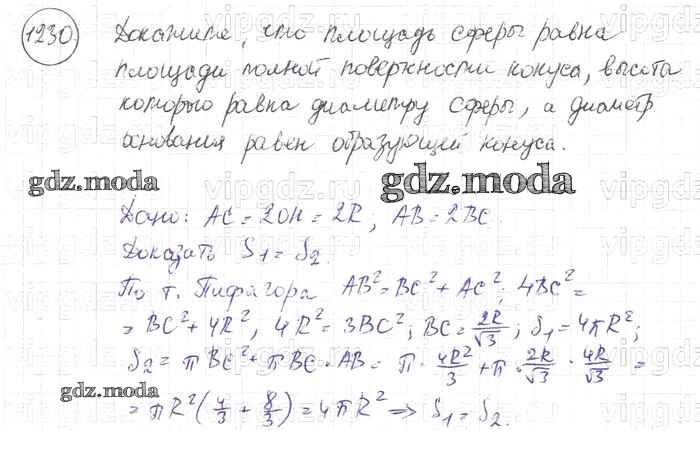 1230 Докажите, что площадь сферы равна
площади полной поверхности конуса, высота
которого равна диаметру сферы, а диаметр
основания равен образующей конуса.
gdz.moda gdz.moda
Дано: AC = 2OH = 2R; AB = 2BC.
Доказать S₁ = S₂.
По т. Пифагора AB² = BC² + AC²; 4BC² =
= BC² + 4R², 4R² = 3BC²; BC = 2R/√3; S₁ = 4πR²;
S₂ = πBC² + πBC · AB = π · 4R²/3 + π · 2R/√3 · 4R/√3 =
gdz.moda gdz.moda
= πR²(4/3 + 8/3) = 4πR² ⇒ S₁ = S₂.